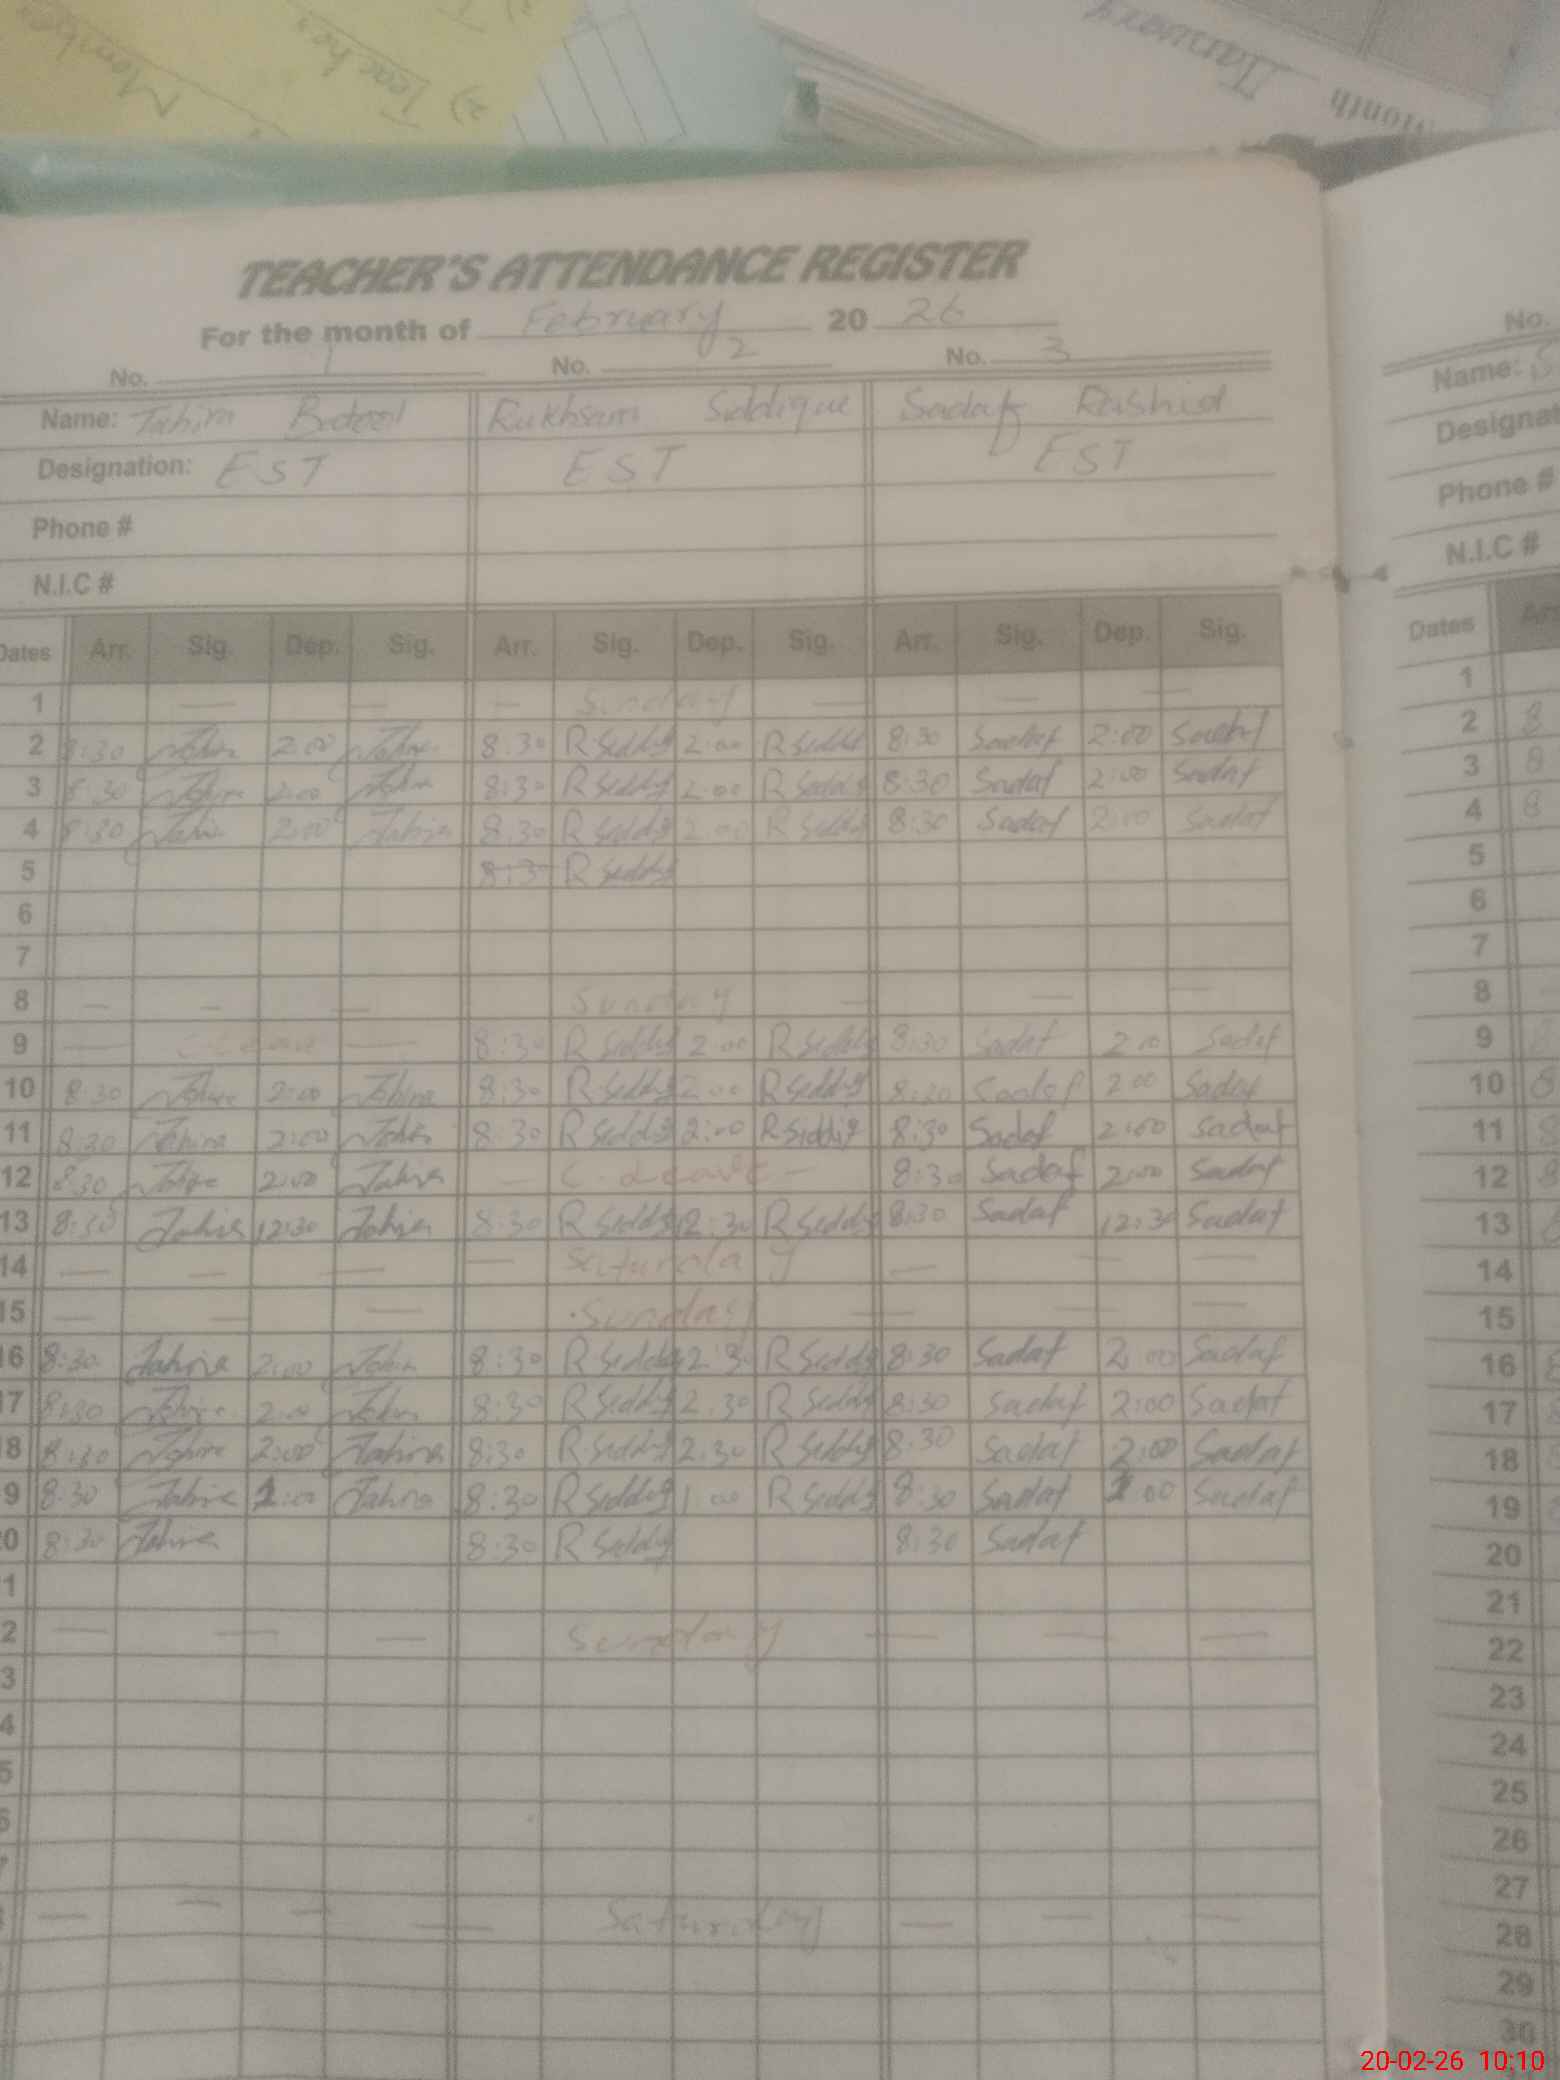 Member
2) Teacher
Month January
TEACHER'S ATTENDANCE REGISTER
For the month of February 20 26
No. 1 No. 2 No. 3
Name: Tahira Batool Rukhsam Siddique Sadaf Rashid
Designation: EST EST EST
Phone #
N.I.C #
Dates Arr. Sig. Dep. Sig. Arr. Sig. Dep. Sig. Arr. Sig. Dep. Sig.
1 — — — Sunday — — —
2 8:30 Tahira 2:00 Tahira 8:30 R Siddiq 2:00 R Siddiq 8:30 Sadaf 2:00 Sadaf
3 8:30 Tahira 2:00 Tahira 8:30 R Siddiq 2:00 R Siddiq 8:30 Sadaf 2:00 Sadaf
4 8:30 Tahira 2:00 Tahira 8:30 R Siddiq 2:00 R Siddiq 8:30 Sadaf 2:00 Sadaf
5 8:30 R Siddiq
6
7
8 — — — Sunday — — —
9 — C Leave — 8:30 R Siddiq 2:00 R Siddiq 8:30 Sadaf 2:00 Sadaf
10 8:30 Tahira 2:00 Tahira 8:30 R Siddiq 2:00 R Siddiq 8:30 Sadaf 2:00 Sadaf
11 8:30 Tahira 2:00 Tahira 8:30 R Siddiq 2:00 R Siddiq 8:30 Sadaf 2:00 Sadaf
12 8:30 Tahira 2:00 Tahira — C. Leave — 8:30 Sadaf 2:00 Sadaf
13 8:30 Tahira 12:30 Tahira 8:30 R Siddiq 12:30 R Siddiq 8:30 Sadaf 12:30 Sadaf
14 — — — — Saturday — — —
15 — — — Sunday — — —
16 8:30 Tahira 2:00 Tahira 8:30 R Siddiq 2:30 R Siddiq 8:30 Sadaf 2:00 Sadaf
17 8:30 Tahira 2:00 Tahira 8:30 R Siddiq 2:30 R Siddiq 8:30 Sadaf 2:00 Sadaf
18 8:30 Tahira 2:00 Tahira 8:30 R Siddiq 2:30 R Siddiq 8:30 Sadaf 2:00 Sadaf
9 8:30 Tahira 1:00 Tahira 8:30 R Siddiq 1:00 R Siddiq 8:30 Sadaf 1:00 Sadaf
0 8:30 Tahira 8:30 R Siddiq 8:30 Sadaf
1
2 — — — Sunday — — —
3
4
5
6
7
— — — — Saturday — — —
No.
Name: S
Designat
Phone #
N.I.C #
Dates Arr
1
2 8
3 8
4 8
5
6
7
8
9 8
10 8
11 8
12 8
13 8
14
15
16 8
17 8
18 8
19
20
21
22
23
24
25
26
27
28
29
30
20-02-26 10:10